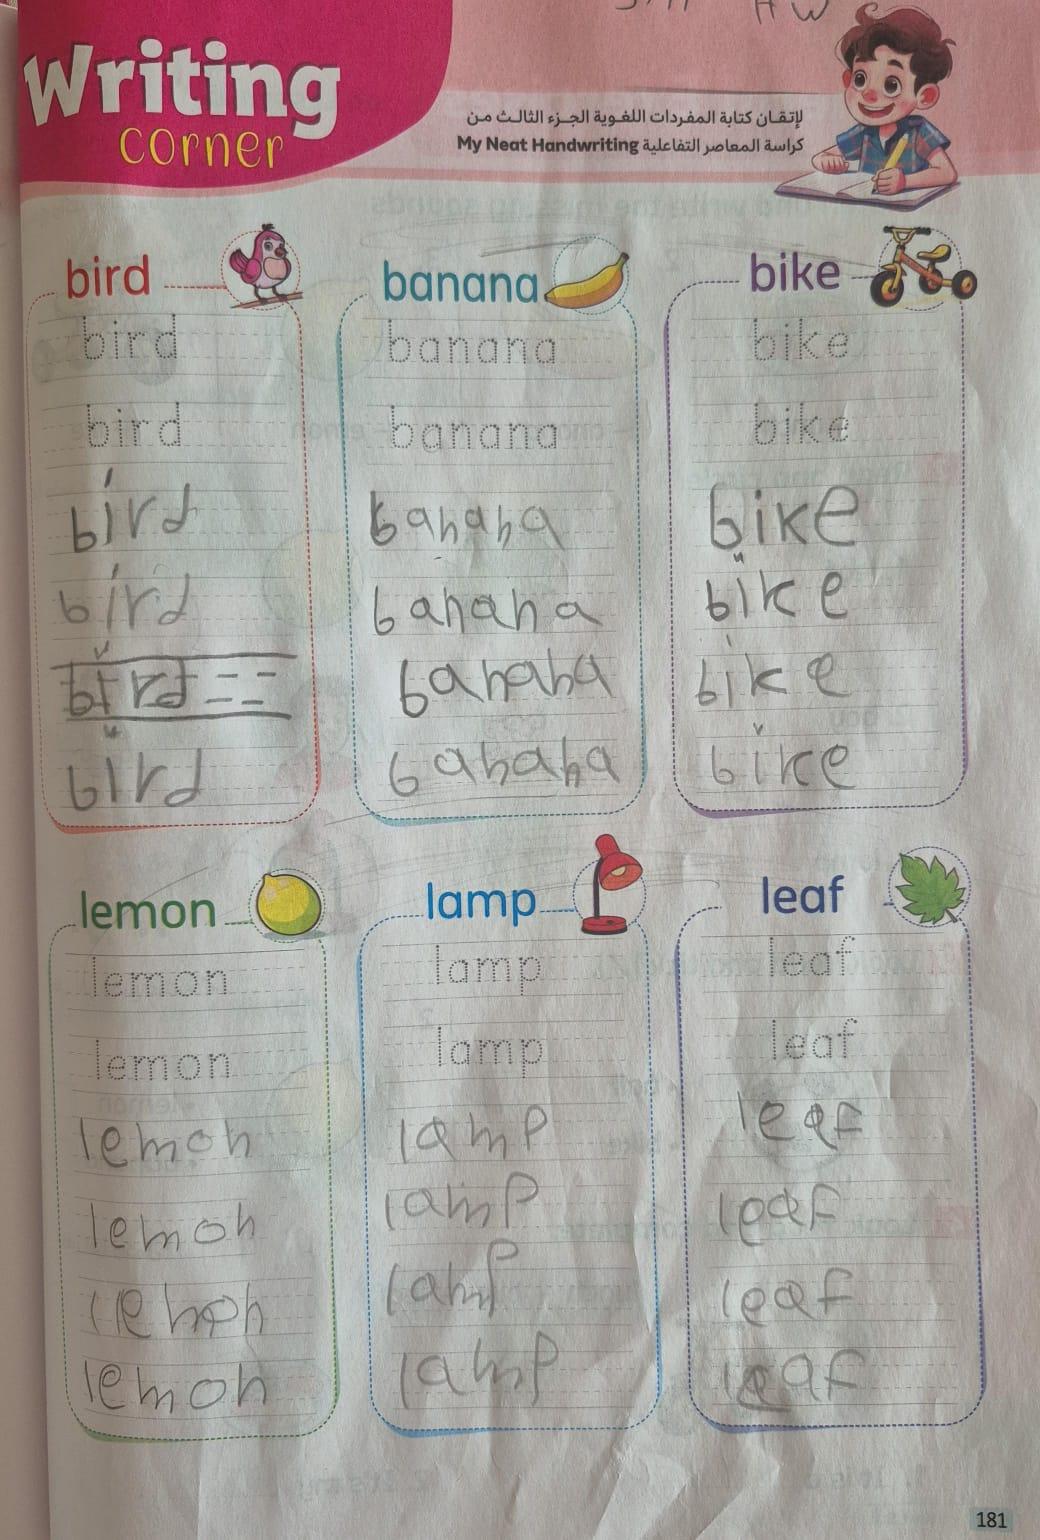 HW
Writing
corner
لإتقان كتابة المفردات اللغوية الجزء الثالث من
كراسة المعاصر التفاعلية My Neat Handwriting
bird
bird
bird
bird
bird
bird
bird
banana
banana
banana
banana
banana
banana
banana
bike
bike
bike
bike
bike
bike
bike
lemon
lemon
lemon
lemon
lemon
lemon
lemon
lamp
lamp
lamp
lamp
lamp
lamp
lamp
leaf
leaf
leaf
leaf
leaf
leaf
leaf
181